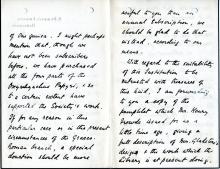 of Our genius. I might perhaps
mention that, though we
have not been subscribers
before, we have purchased
all the four parts of the
Oxyrhynchus Papyri, & so
to a certain extent have
supported the Society's work.
If for any reason in this
particular case or in the present
circumstances of the Graeco-
Roman branch, a special
donation should be more
useful to you than an
annual Subscription, we
should be glad to do that
instead, according to our
means.
With regard to the suitability
of our Institution to be
entrusted with treasures of
this kind, I am forwarding
to you a copy of the
pamphlet which Mr Henry
issued for us a
little time ago, giving a
full description of Mr Gladstone's
design & the work which the
Library at present doing.